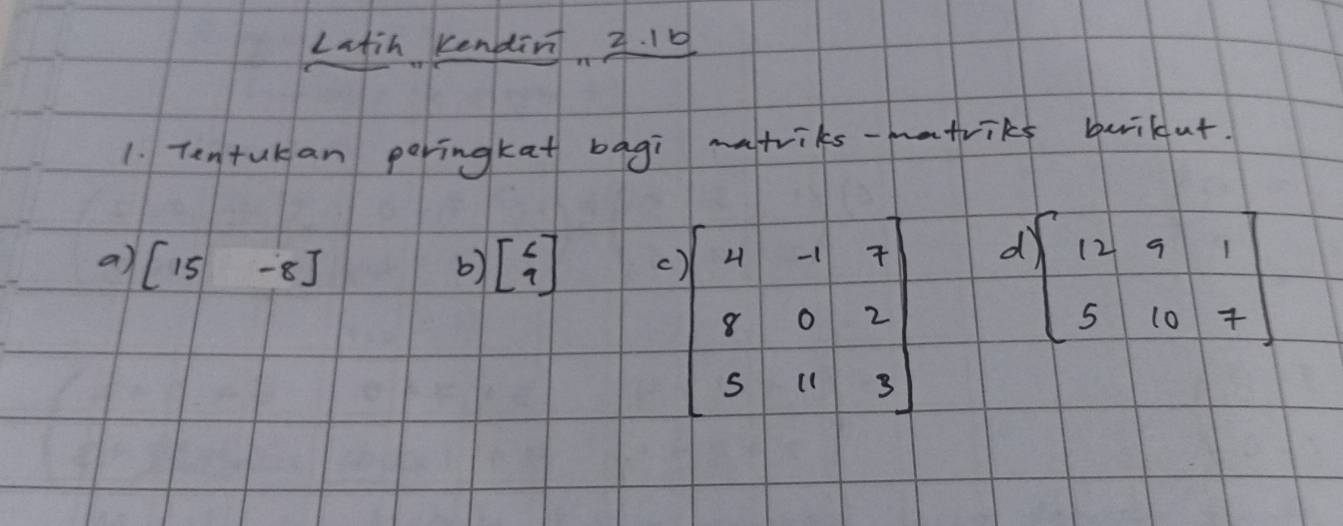 Latih Kendiri 2.1b
1. Tentukan peringkat bagi matriks-matriks berikut.
a) [15 -8] b) [6 9] c) [4 -1 7 d) [12 9 1
8 0 2 5 10 7]
5 11 3]